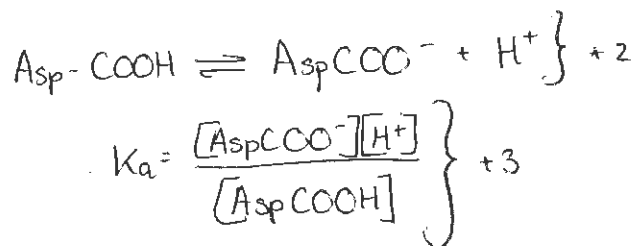 Asp-COOH ⇌ AspCOO⁻ + H⁺ } +2
Ka = [AspCOO⁻][H⁺] / [AspCOOH] } +3